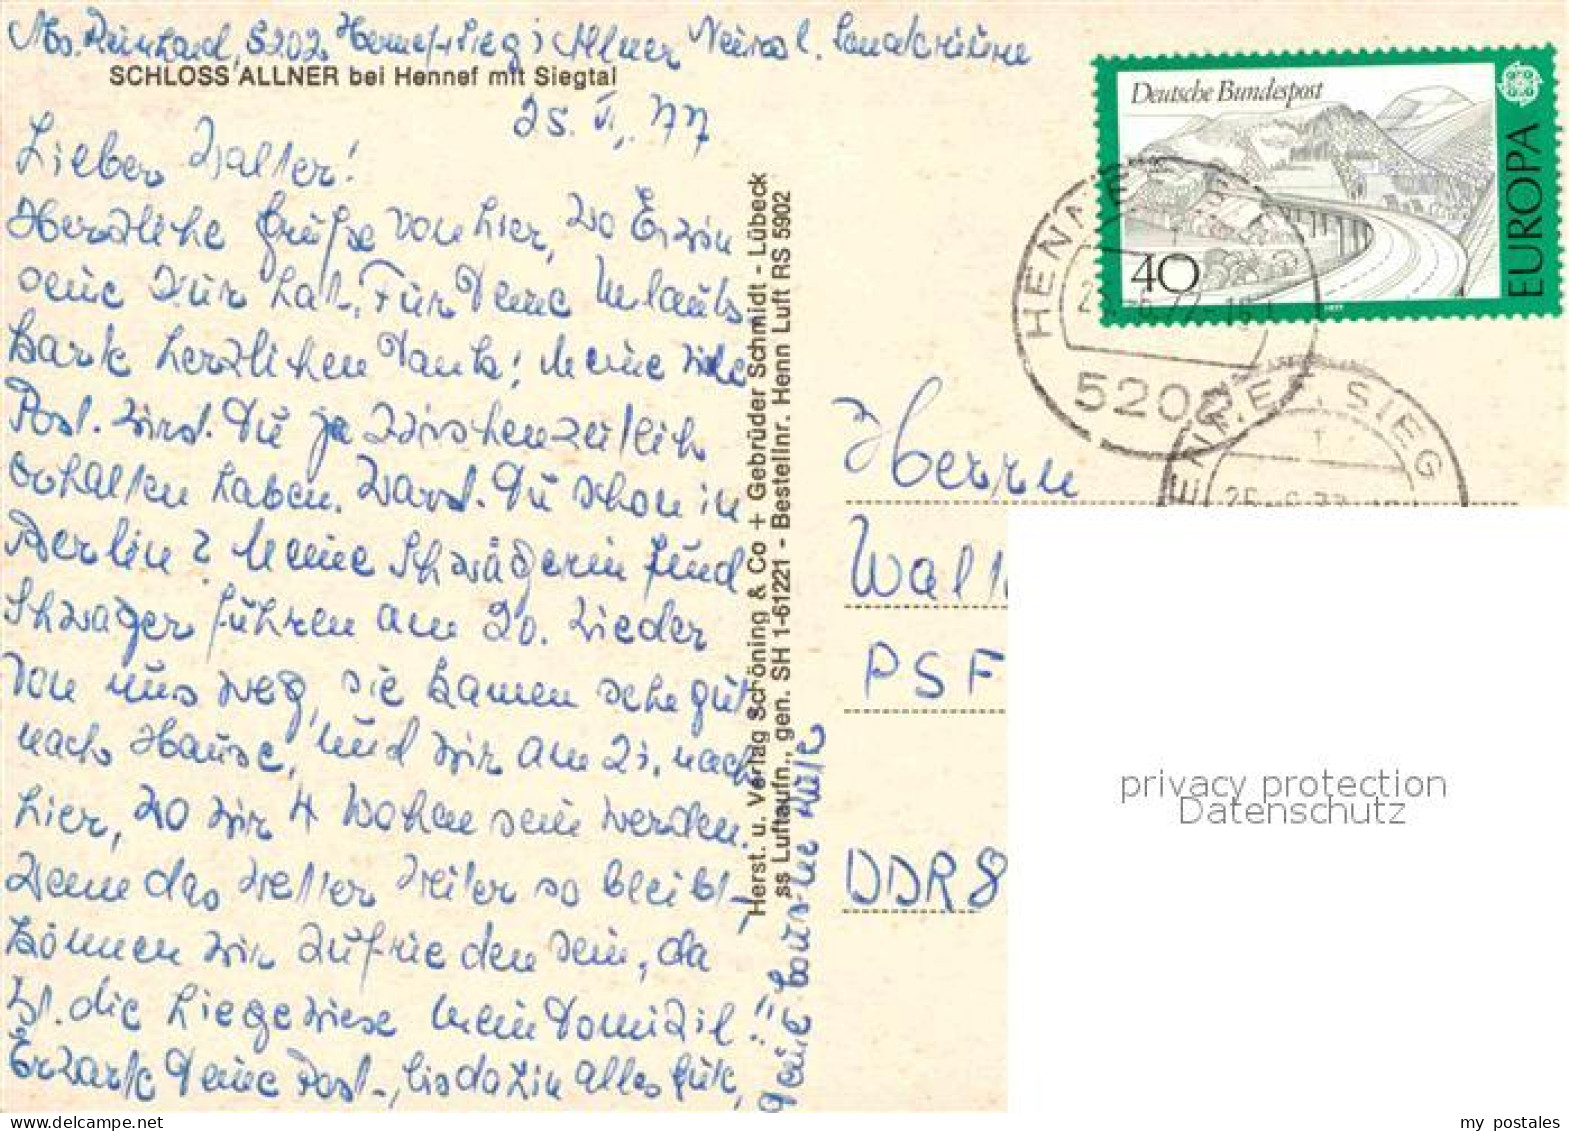 5202 Hennef-Sieg 1 Allner
SCHLOSS ALLNER bei Hennef mit Siegtal
25. VI. 77
Lieber Walter!
Herzliche Grüße von hier, wo Erwin
seine Kur hat. Für Deine Urlaubs
karte herzlichen Dank! Meine
Post wirst Du ja zwischenzeitlich
erhalten haben. Warst Du schon in
Berlin? Meine Schwägerin und
Schwager führen am 20. wieder
von uns weg, sie kamen sehr gut
nach Hause, und wir am 21. nach
hier, wo wir 4 Wochen sein werden.
Wenn das Wetter weiter so bleibt,
können wir zufrieden sein, da
ist die Liegewiese mein Domizil!!
Erwarte Deine Post, bis dahin alles Gute,
Deine
Herst. u. Verlag Schöning & Co + Gebrüder Schmidt - Lübeck
ss Luftaufn., gen. SH 1-61221 - Bestellnr. Henn Luft RS 5902
Deutsche Bundespost
40
EUROPA
HENNEF
5202
HENNEF, SIEG
Herrn
Walt
PSF
DDR 8
privacy protection
Datenschutz
my postales